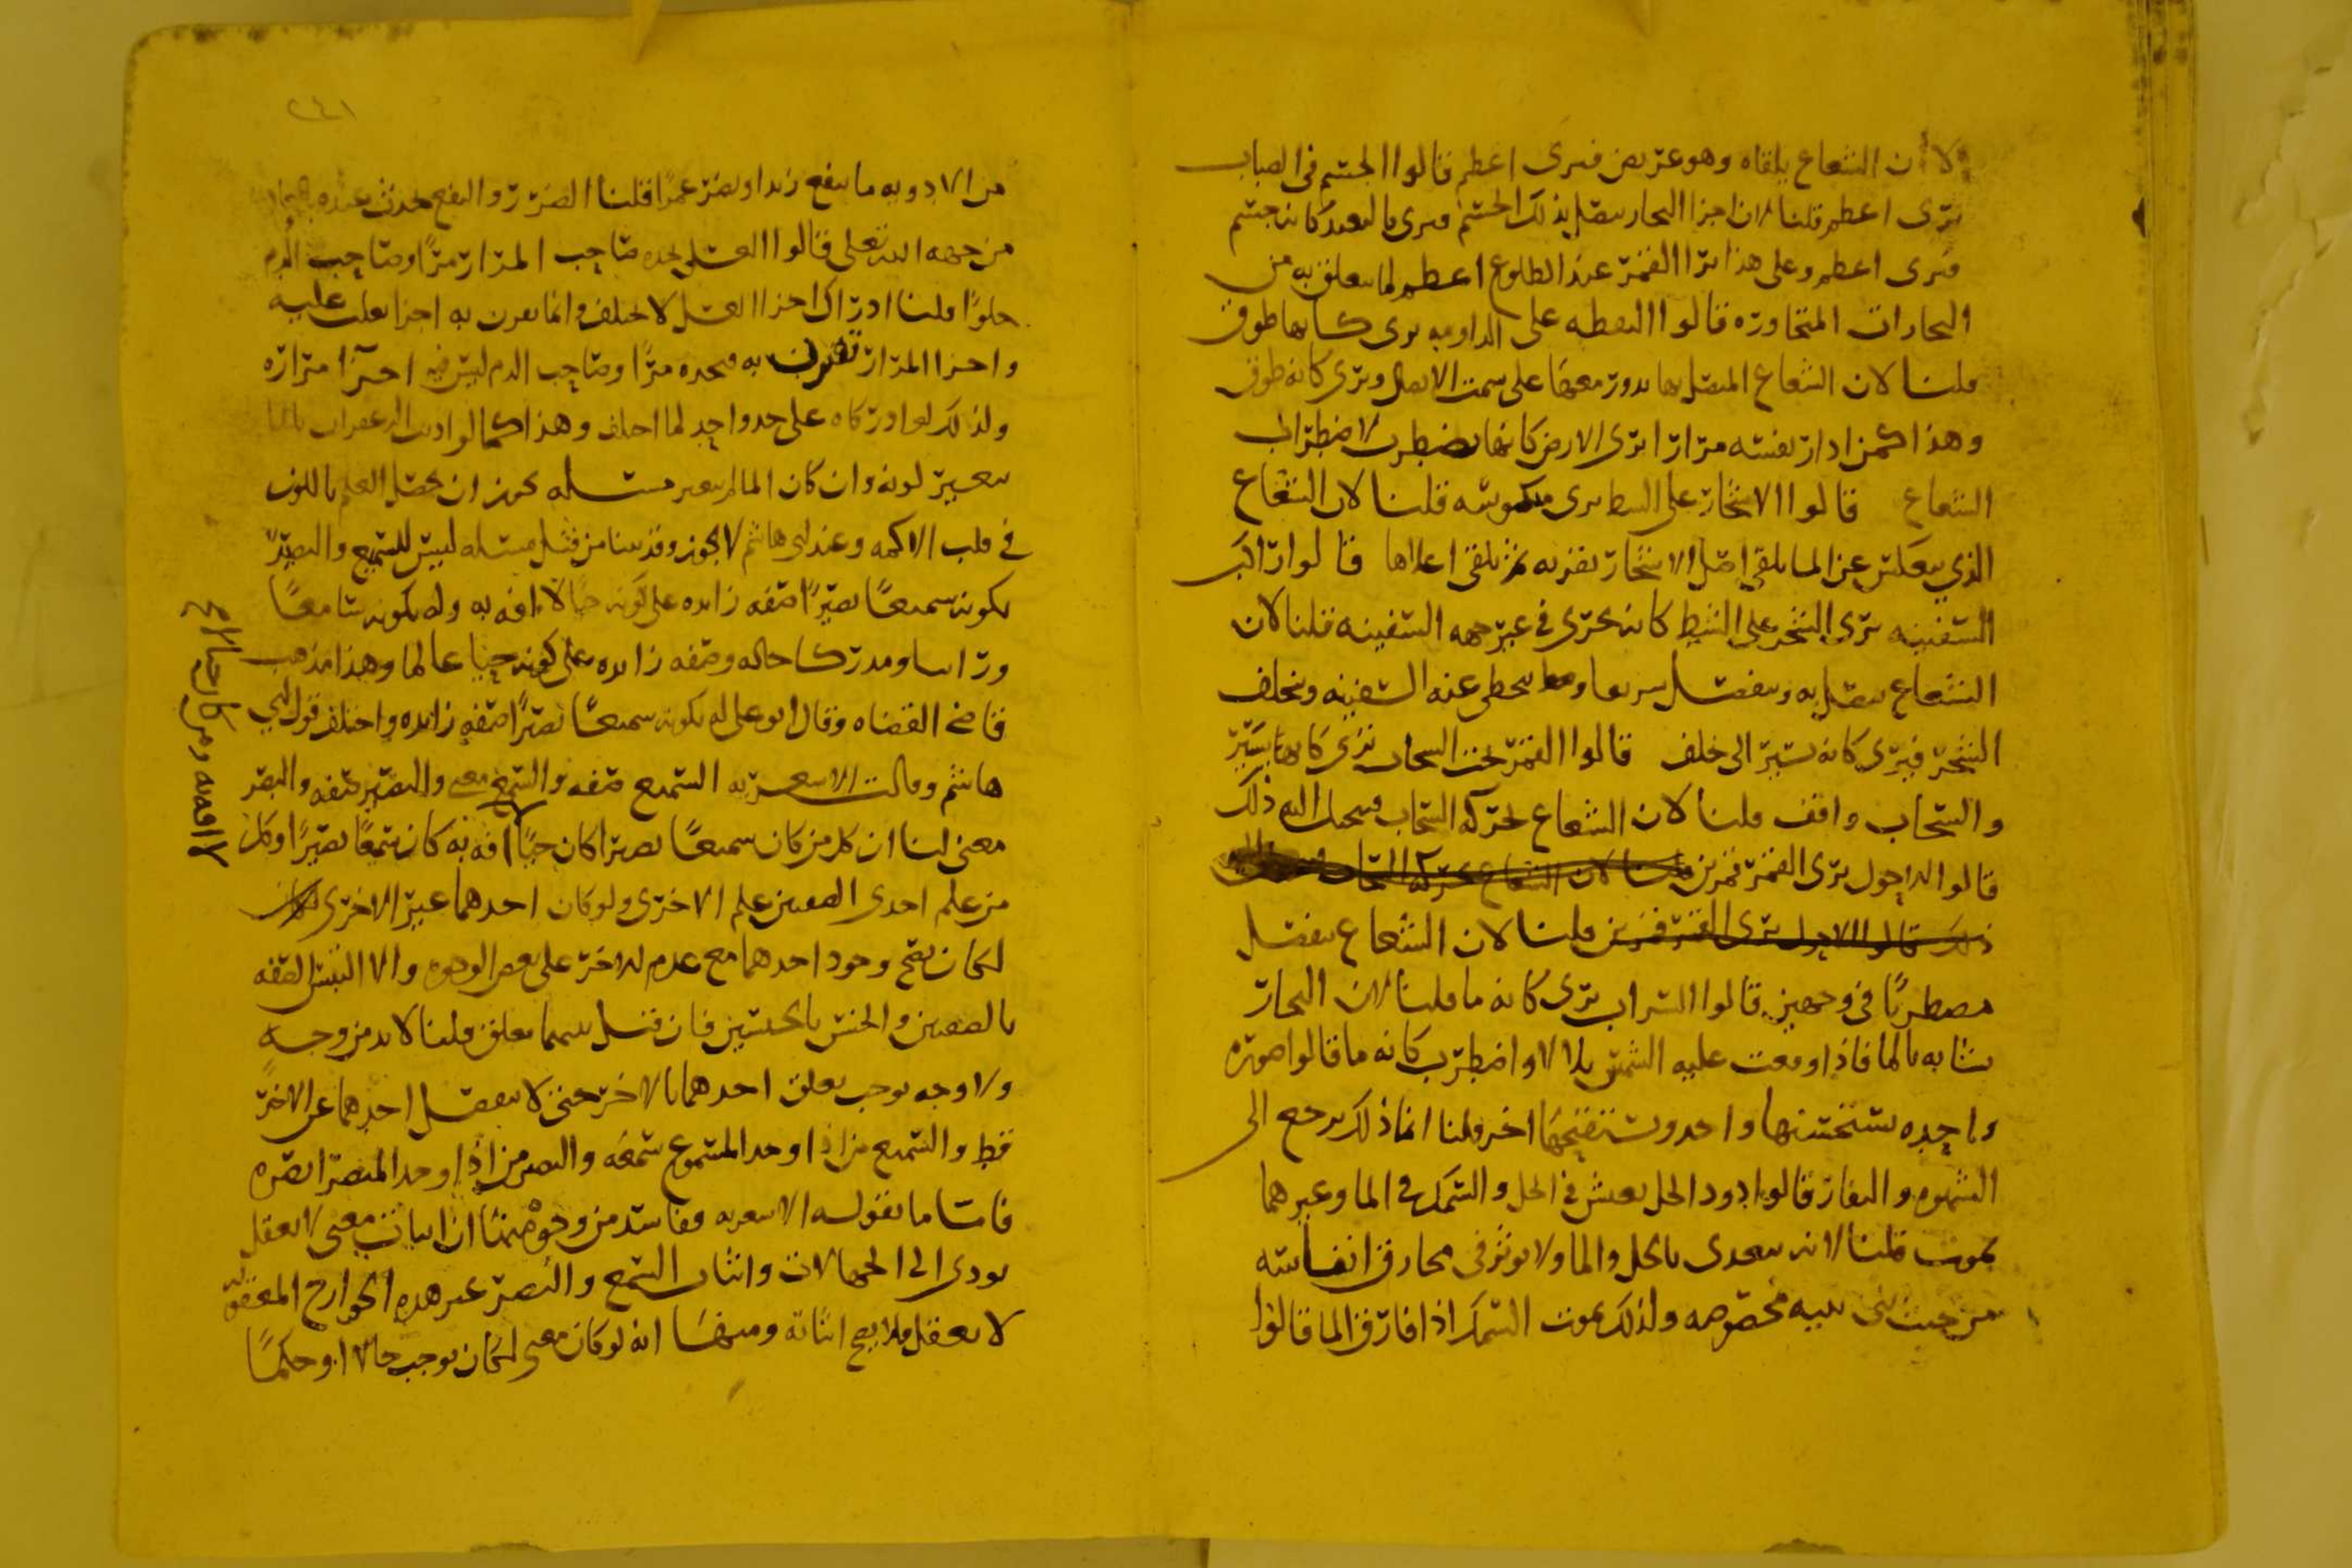 لان الشعاع يلقاه وهو عريض فيرى اعظم قالوا الجسم في الضباب
يرى اعظم قلنا لان اجزا البخار يتصل بذلك الجسم فيرى بالبعد كانه جسم
فيرى اعظم وعلى هذا يرا القمر عند الطلوع اعظم لما يتعلق به من
البخارات المتجاوره قالوا النقطه على الدوامه يرى كانها طوق
قلنا لان الشعاع المتصل بها يدور معها على سمت الاتصال ويرى كانه طوق
وهذا كمن ادار نفسه مرارا يرى الارض كانها تضطرب لاضطراب
الشعاع قالوا الاشجار على الشط يرى منكوسه قلنا لان الشعاع
الذي ينعكس عن الما يلقى اصل الاشجار بقربه ثم يلقى اعلاها قالوا راكب
السفينه يرى الشجر على الشط كانه يجري في غير جهه السفينه قلنا لان
الشعاع يتصل به وينفصل سريعا وتتخطى عنه السفينه ويخلف
الشجر فيرى كانه يسير الى خلف قالوا القمر تحت السحاب يرى كانها يسير
والسحاب واقف قلنا لان الشعاع لحركه السحاب ذلك
قالوا الاحول يرى القمر قمرين قلنا لان الشعاع لحركه السحاب
ذلك قالوا الاحول يرى القمر قمرين قلنا لان الشعاع ينفصل
مضطربا في وجهين قالوا السراب يرى كانه ما قلنا لان البخار
يشابه بالما فاذا وقعت عليه الشمس تلالا واضطرب كانه ما قالوا صوره
واحده يستحسنها واحد ويستقبحها اخر قلنا انما ذلك يرجع الى
الشهوه والنفار قالوا دود الخل يعيش في الخل والسمك في الما وغيرهما
يموت قلنا لانه يتغذى بالخل والما ولا يوثر في مخارق انفاسه
من حيث بنى بنيه مخصوصه ولذلك يموت السمك اذا فارق الما قالوا
٢٤١
من الادويه ما ينفع زيدا ويضر عمرا قلنا الضرر والنفع يحدث عنده
من جهه الله تعلى قالوا العسل يجده صاحب المرار مرا وصاحب الدم
حلوا قلنا ادراك اجزا العسل لا يختلف وانما يقرن به اجزا يغلب عليه
واجزا المرار تقترن به فيجده مرا وصاحب الدم ليس فيه اجزا مراره
ولذلك لو ادركاه على حد واحد لما اختلف وهذا كما لو اذيب الزعفران بالما
يتغير لونه وان كان الما لم يتغير مسئله يجوز ان يحصل العلم باللون
في قلب الاكمه وعند ابي هاشم لا يجوز وقد بينا من قبل مسئله ليس للسميع والبصير
بكونه سميعا بصيرا صفه زايده على كونه حيا لا افه به وله بكونه سامعا
ورائيا ومدركا حاله وصفه زايده على كونه حيا عالما وهذا مذهب
قاضي القضاه وقال ابو علي له بكونه سميعا بصيرا صفه زايده واختلف قول ابي
هاشم وقالت الاشعريه السميع صفه والسمع معنى والبصير صفه والبصر
معنى لنا ان كل من كان سميعا بصيرا كان حيا لا افه به كان سميعا بصيرا وكل
من علم احدى الصفتين علم الاخرى ولو كان احدهما غير الاخرى لكان
لكان يصح وجود احدهما مع عدم الاخر على بعض الوجوه والا التبس الصفه
بالصفتين والجنس بالجنسين فان قيل بينهما تعلق قلنا لا بد من وجه
ولا وجه يوجب تعلق احدهما بالاخر حتى لا ينفصل احدهما عن الاخر
قط والسميع من اذا وجد المسموع سمعه والبصير من اذا وجد المبصر ابصره
فاما ما يقوله الاشعريه ففاسد من وجوه منها ان اثبات معنى لا يعقل
يودي الى الجهالات واثبات السمع والبصر غير هذه الجوارح المعقوله
لا يعقل فلا يصح اثباته ومنها انه لو كان معنى لكان يوجب حالا او حكما
لا افه به ومن كان حيا لا